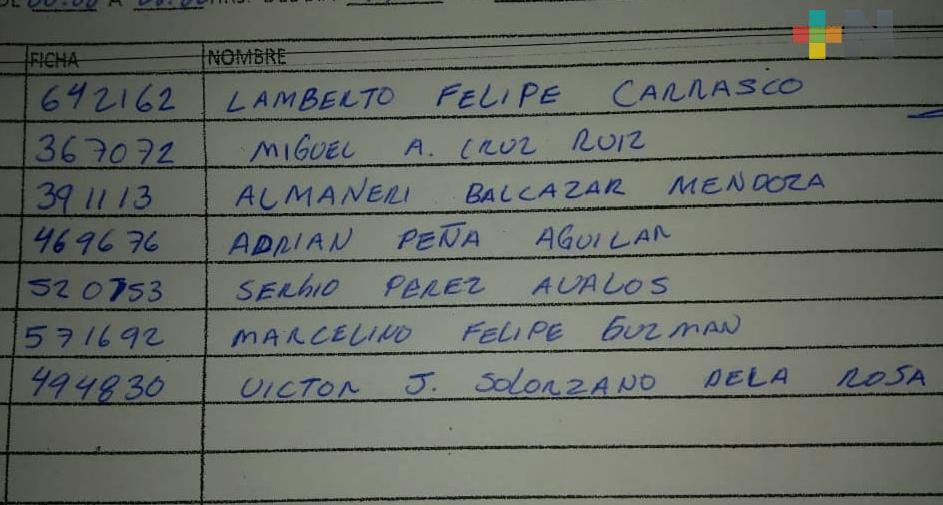 FICHA NOMBRE
642162 LAMBERTO FELIPE CARRASCO
367072 MIGUEL A. CRUZ RUIZ
391113 ALMANERI BALCAZAR MENDOZA
469676 ADRIAN PEÑA AGUILAR
520753 SERGIO PEREZ AVALOS
571692 MARCELINO FELIPE GUZMAN
494830 VICTOR J. SOLORZANO DELA ROSA